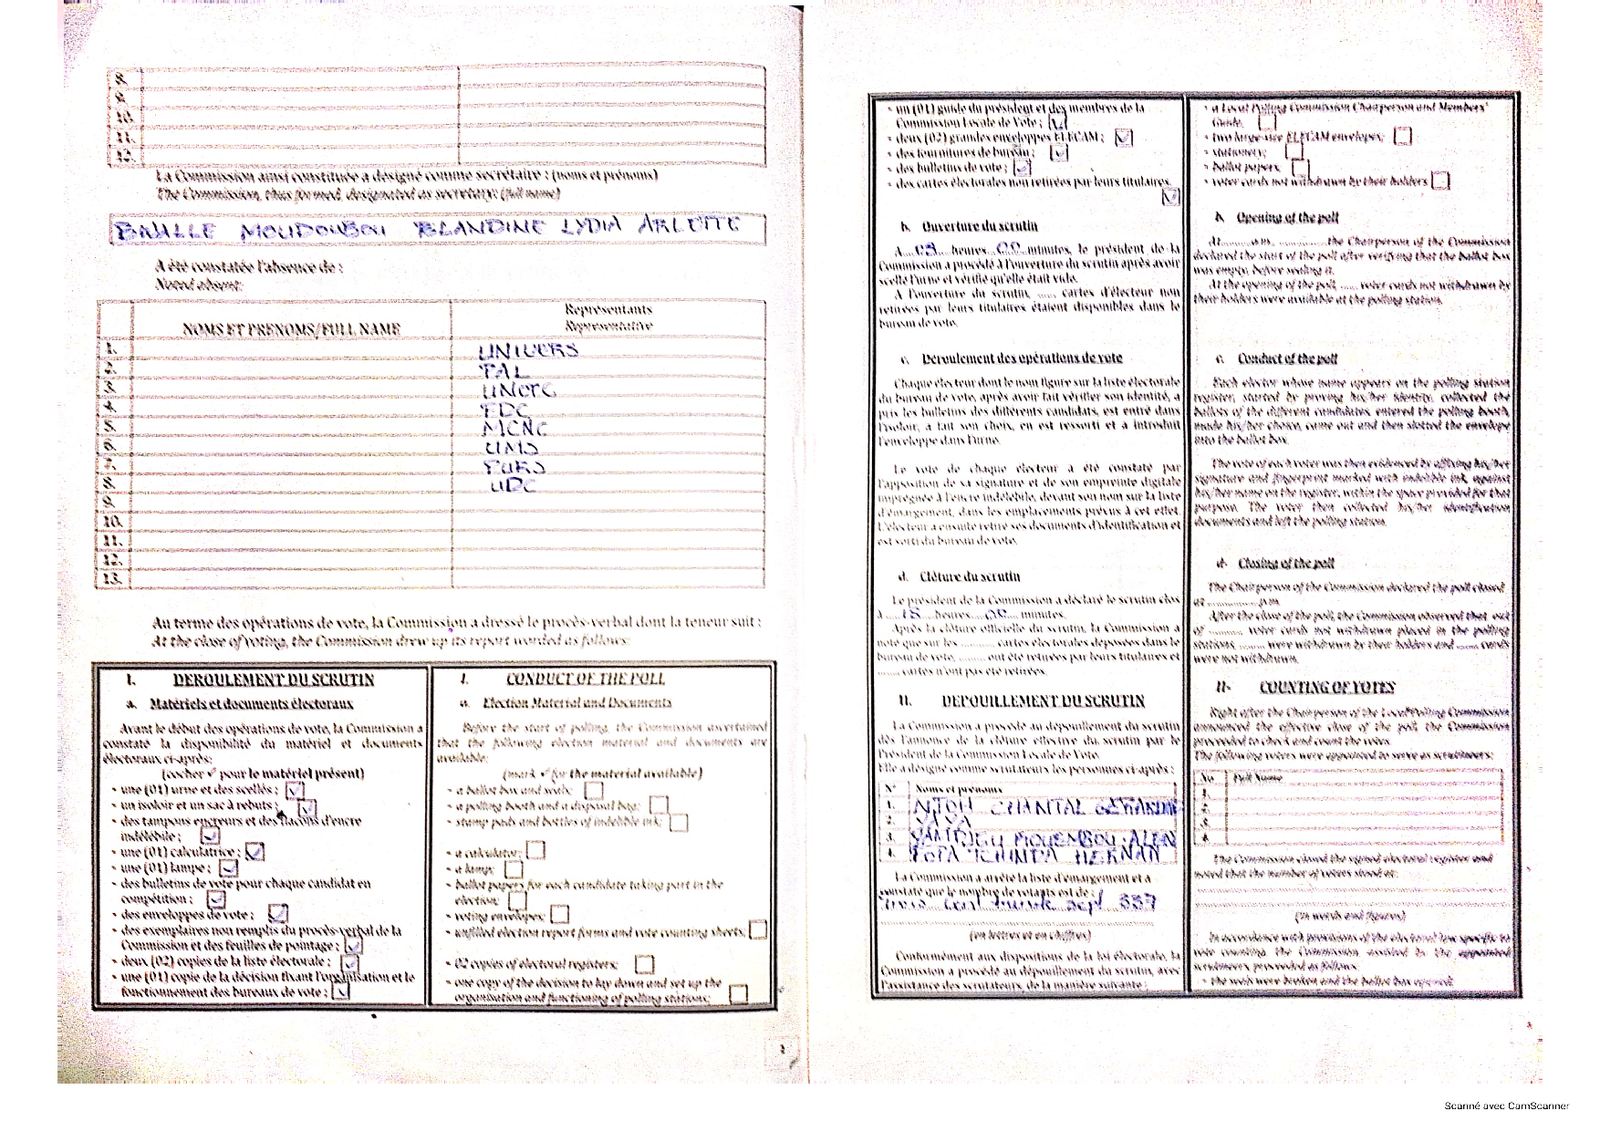 8.
9.
10.
11.
12.
La Commission ainsi constituée a désigné comme secrétaire : (noms et prénoms)
The Commission, thus formed, designated as secretary: (full name)
MOUDOUBOU BLANDINE LYDIA ARLETTE
A été constatée l'absence de :
Noted absent:
NOMS ET PRENOMS/FULL NAME
Représentants
Representative
1. UNIVERS
2. PAL
3.
4. FDC
5. MCNC
6. UMS
7. PURS
8. UDC
9.
10.
11.
12.
13.
Au terme des opérations de vote, la Commission a dressé le procès-verbal dont la teneur suit :
At the close of voting, the Commission drew up its report worded as follows:
I. DEROULEMENT DU SCRUTIN
a. Matériels et documents électoraux
Avant le début des opérations de vote, la Commission a
constaté la disponibilité du matériel et documents
électoraux ci-après:
(cocher ✓ pour le matériel présent)
- une (01) urne et des scellés ; ✓
- un isoloir et un sac à rebuts ; ✓
- des tampons encreurs et des flacons d'encre
indélébile ; ✓
- une (01) calculatrice ; ✓
- une (01) lampe ; ✓
- des bulletins de vote pour chaque candidat en
compétition ; ✓
- des enveloppes de vote ; ✓
- des exemplaires non remplis du procès-verbal de la
Commission et des feuilles de pointage ; ✓
- deux (02) copies de la liste électorale ; ✓
- une (01) copie de la décision fixant l'organisation et le
fonctionnement des bureaux de vote ; ✓
I. CONDUCT OF THE POLL
a. Election Material and Documents
Before the start of polling, the Commission ascertained
that the following election material and documents are
available:
(mark ✓ for the material available)
- a ballot box and seals;
- a polling booth and a disposal bag;
- stamp pads and bottles of indelible ink;
- a calculator;
- a lamp;
- ballot papers for each candidate taking part in the
election;
- voting envelopes;
- unfilled election report forms and vote counting sheets;
- 02 copies of electoral registers;
- one copy of the decision to lay down and set up the
organisation and functioning of polling stations;
2
- un (01) guide du président et des membres de la
Commission Locale de Vote ; ✓
- deux (02) grandes enveloppes ELECAM ; ✓
- des fournitures de bureau ; ✓
- des bulletins de vote ; ✓
- des cartes électorales non retirées par leurs titulaires
✓
b. Ouverture du scrutin
A 08 heures 00 minutes, le président de la
Commission a procédé à l'ouverture du scrutin après avoir
scellé l'urne et vérifié qu'elle était vide.
A l'ouverture du scrutin, ...... cartes d'électeur non
retirées par leurs titulaires étaient disponibles dans le
bureau de vote.
c. Déroulement des opérations de vote
Chaque électeur dont le nom figure sur la liste électorale
du bureau de vote, après avoir fait vérifier son identité, a
pris les bulletins des différents candidats, est entré dans
l'isoloir, a fait son choix, en est ressorti et a introduit
l'enveloppe dans l'urne.
Le vote de chaque électeur a été constaté par
l'apposition de sa signature et de son empreinte digitale
imprégnée à l'encre indélébile, devant son nom sur la liste
d'émargement, dans les emplacements prévus à cet effet.
L'électeur a ensuite retiré ses documents d'identification et
est sorti du bureau de vote.
d. Clôture du scrutin
Le président de la Commission a déclaré le scrutin clos
à 18 heures 00 minutes.
Après la clôture officielle du scrutin, la Commission a
noté que sur les .......... cartes électorales déposées dans le
bureau de vote, .......... ont été retirées par leurs titulaires et
........ cartes n'ont pas été retirées.
II. DEPOUILLEMENT DU SCRUTIN
La Commission a procédé au dépouillement du scrutin
dès l'annonce de la clôture effective du scrutin par le
Président de la Commission Locale de Vote.
Elle a désigné comme scrutateurs les personnes ci-après :
N° Noms et prénoms
1. NTOH CHANTAL
2.
3. MOUEMBOU ALEN
4. HERNAN
La Commission a arrêté la liste d'émargement et a
constaté que le nombre de votants est de :
Trois cent trente sept 337
(en lettres et en chiffres)
Conformément aux dispositions de la loi électorale, la
Commission a procédé au dépouillement du scrutin, avec
l'assistance des scrutateurs, de la manière suivante :
- a Local Polling Commission Chairperson and Members'
Guide,
- two large-size ELECAM envelopes;
- stationery;
- ballot papers,
- voter cards not withdrawn by their holders
b. Opening of the poll
At.........a.m. ..............the Chairperson of the Commission
declared the start of the poll after verifying that the ballot box
was empty, before sealing it.
At the opening of the poll, ...... voter cards not withdrawn by
their holders were available at the polling station.
c. Conduct of the poll
Each elector whose name appears on the polling station
register, started by proving his/her identity, collected the
ballots of the different candidates, entered the polling booth,
made his/her choice, came out and then slotted the envelope
into the ballot box.
The vote of each voter was then evidenced by affixing his/her
signature and fingerprint marked with indelible ink, against
his/her name on the register, within the space provided for that
purpose. The voter then collected his/her identification
documents and left the polling station.
d- Closing of the poll
The Chairperson of the Commission declared the poll closed
at ...............p.m.
After the close of the poll, the Commission observed that out
of .......... voter cards not withdrawn placed in the polling
stations, ......... were withdrawn by their holders and ...... cards
were not withdrawn.
II- COUNTING OF VOTES
Right after the Chairperson of the Local Polling Commission
announced the effective close of the poll, the Commission
proceeded to check and count the votes.
The following voters were appointed to serve as scrutineers:
No Full Name
1.
2.
3.
4.
The Commission closed the signed electoral register and
noted that the number of voters stood at:
(in words and figures)
In accordance with provisions of the electoral law specific to
vote counting, the Commission assisted by the appointed
scrutineers, proceeded as follows:
- the seals were broken and the ballot box opened;
3
Scanné avec CamScanner